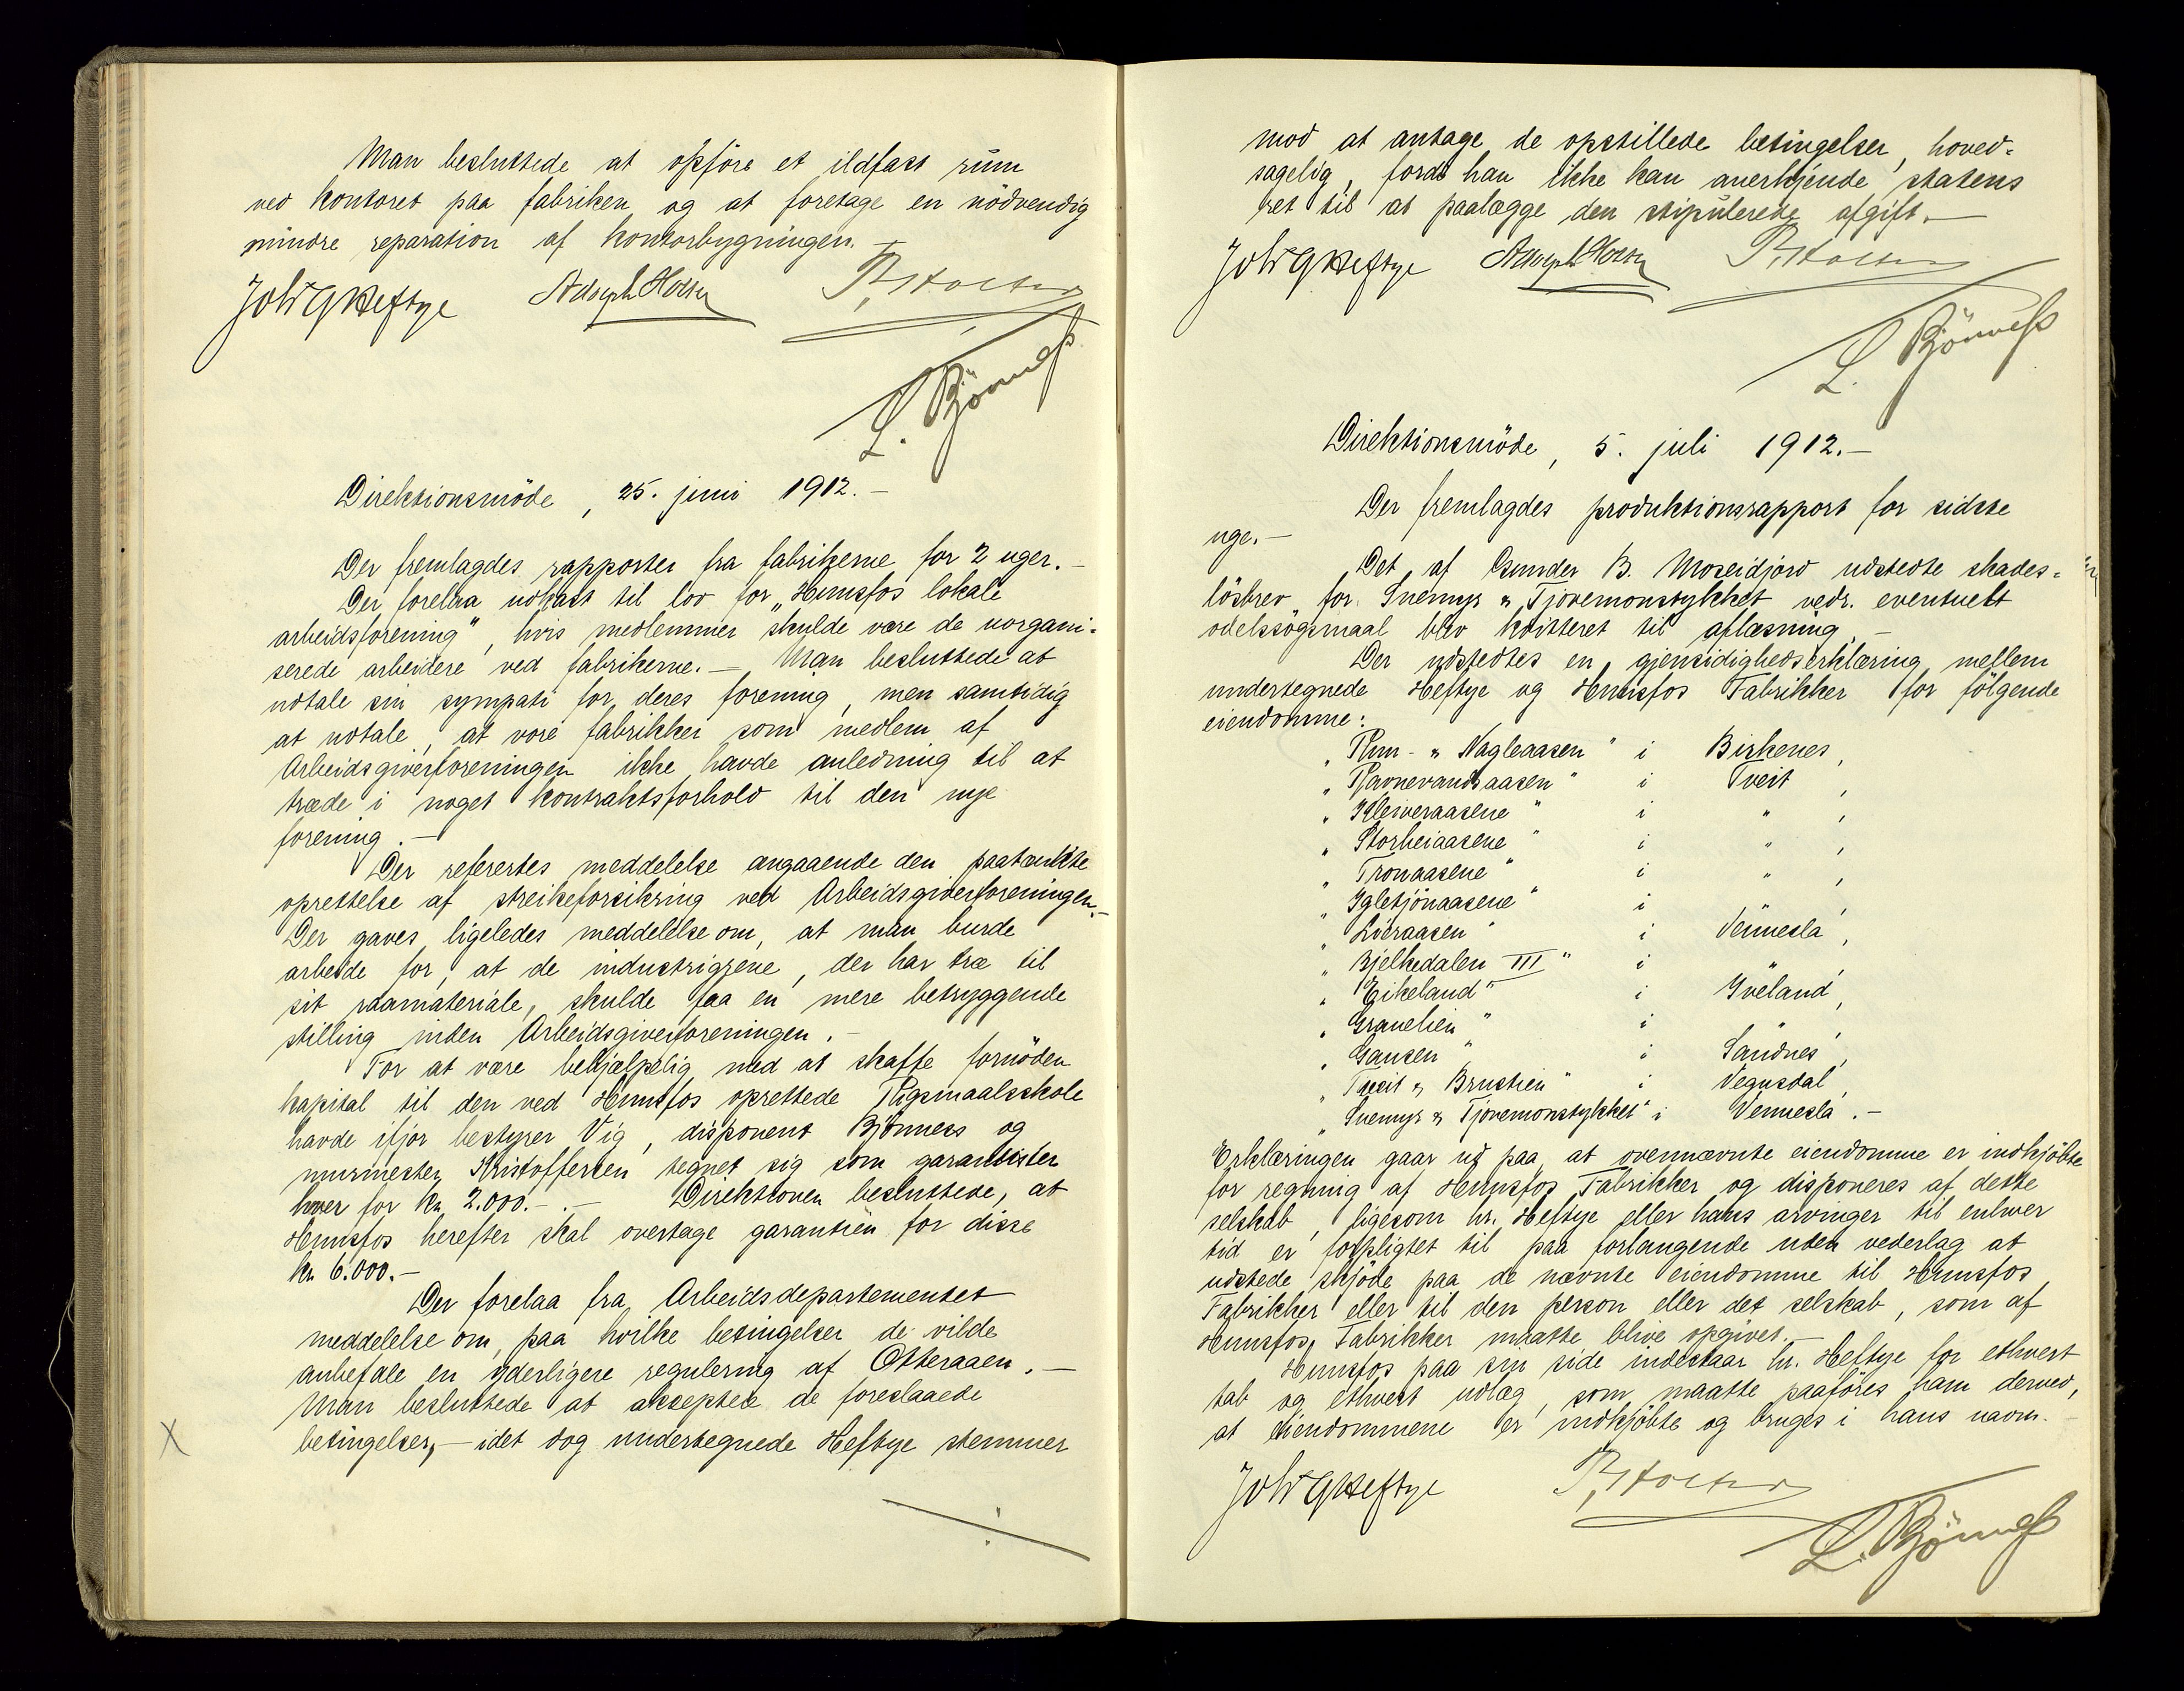 Man besluttede at opføre et ildfast rum
ved kontoret paa fabriken og at foretage en nödvendig
mindre reparation af kontorbygningen. —
Joh GHeftye Adolph Holth
L. Bjönness
Direktionsmöde, 25. juni 1912. —
Der fremlagdes rapporter fra fabrikerne for 2 uger. —
Der forelaa udkast til lov for „Hunsfos lokale
arbeidsforening", hvis medlemmer skulde være de uorgani-
serede arbeidere ved fabrikerne. — Man besluttede at
udtale sin sympati for deres forening, men samtidig
at udtale, at vore fabrikker som medlem af
Arbeidsgiverforeningen ikke havde anledning til at
træde i noget kontraktsforhold til den nye
forening. —
Der referertes meddelelse angaaende den paatænkte
oprettelse af streikeforsikring ved Arbeidsgiverforeningen. —
Der gaves ligeledes meddelelse om, at man burde
arbeide for, at de industrigrene, der har træ til
sit raamateriale, skulde faa en mere betryggende
stilling inden Arbeidsgiverforeningen. —
For at være behjælpelig med at skaffe fornöden
kapital til den ved Hunsfos oprettede Rigsmaalsskole
havde ifjor bestyrer Vig, disponent Bjönness og
murmester Kristoffersen tegnet sig som garantister
hver for kr. 2.000. — . — Direktionen besluttede, at
Hunsfos herefter skal overtage garantien for disse
kr. 6.000. —
Der forelaa fra Arbeidsdepartementet
meddelelse om, paa hvilke betingelser de vilde
anbefale en yderligere regulering af Otteraaen. —
Man besluttede at akseptere de foreslaaede
betingelser, — idet dog undertegnede Heftye stemmer
X
mod at antage de opstillede betingelser, hoved-
sagelig, fordi han ikke kan anerkjende statens
ret til at paalægge den stipulerede afgift. —
Joh GHeftye Adolph Holth
L. Bjönness
Direktionsmöde, 5. juli 1912. —
Der fremlagdes produktionsrapport for sidste
uge. —
Det af Gunder B. Moseidjord udstedte skades-
lösbrev for Snemyr & Tjovemonstykket vedr. eventuelt
odelssögsmaal blev kvitteret til aflæsning. —
Der udstedtes en gjensidighedserklæring mellem
undertegnede Heftye og Hunsfos Fabrikker for fölgende
eiendomme:
" - " Nagleaasen " i Birkenes,
„ Ravnevandsaasen " i Tveit,
„ Kleiveraasene " i " ,
„ Storheiaasene " i " ,
„ Tronaasene " i " ,
„ Igletjönaasene " i " ,
„ Lieraasen " i Vennesla,
„ Bjelkedalen III " i " ,
„ Eikeland " i Iveland,
„ Granelien " i " ,
„ Gausen " i Sandnes,
„ Tveit & Brustien " i Vegusdal,
„ Snemyr & Tjovemonstykket " i Vennesla. —
Erklæringen gaar ud paa, at ovennævnte eiendomme er indkjöbte
for regning af Hunsfos Fabrikker og disponeres af dette
selskab, ligesom hr. Heftye eller hans arvinger til enhver
tid er forpligtet til paa forlangende uden vederlag at
udstede skjöde paa de nævnte eiendomme til Hunsfos
Fabrikker eller til den person eller det selskab, som af
Hunsfos Fabrikker maatte blive opgivet. —
Hunsfos paa sin side indestaar hr. Heftye for ethvert
tab og ethvert udlæg, som maatte paaföres ham derved,
at eiendommene er indkjöbte og bruges i hans navn. —
Joh GHeftye
L. Bjönness